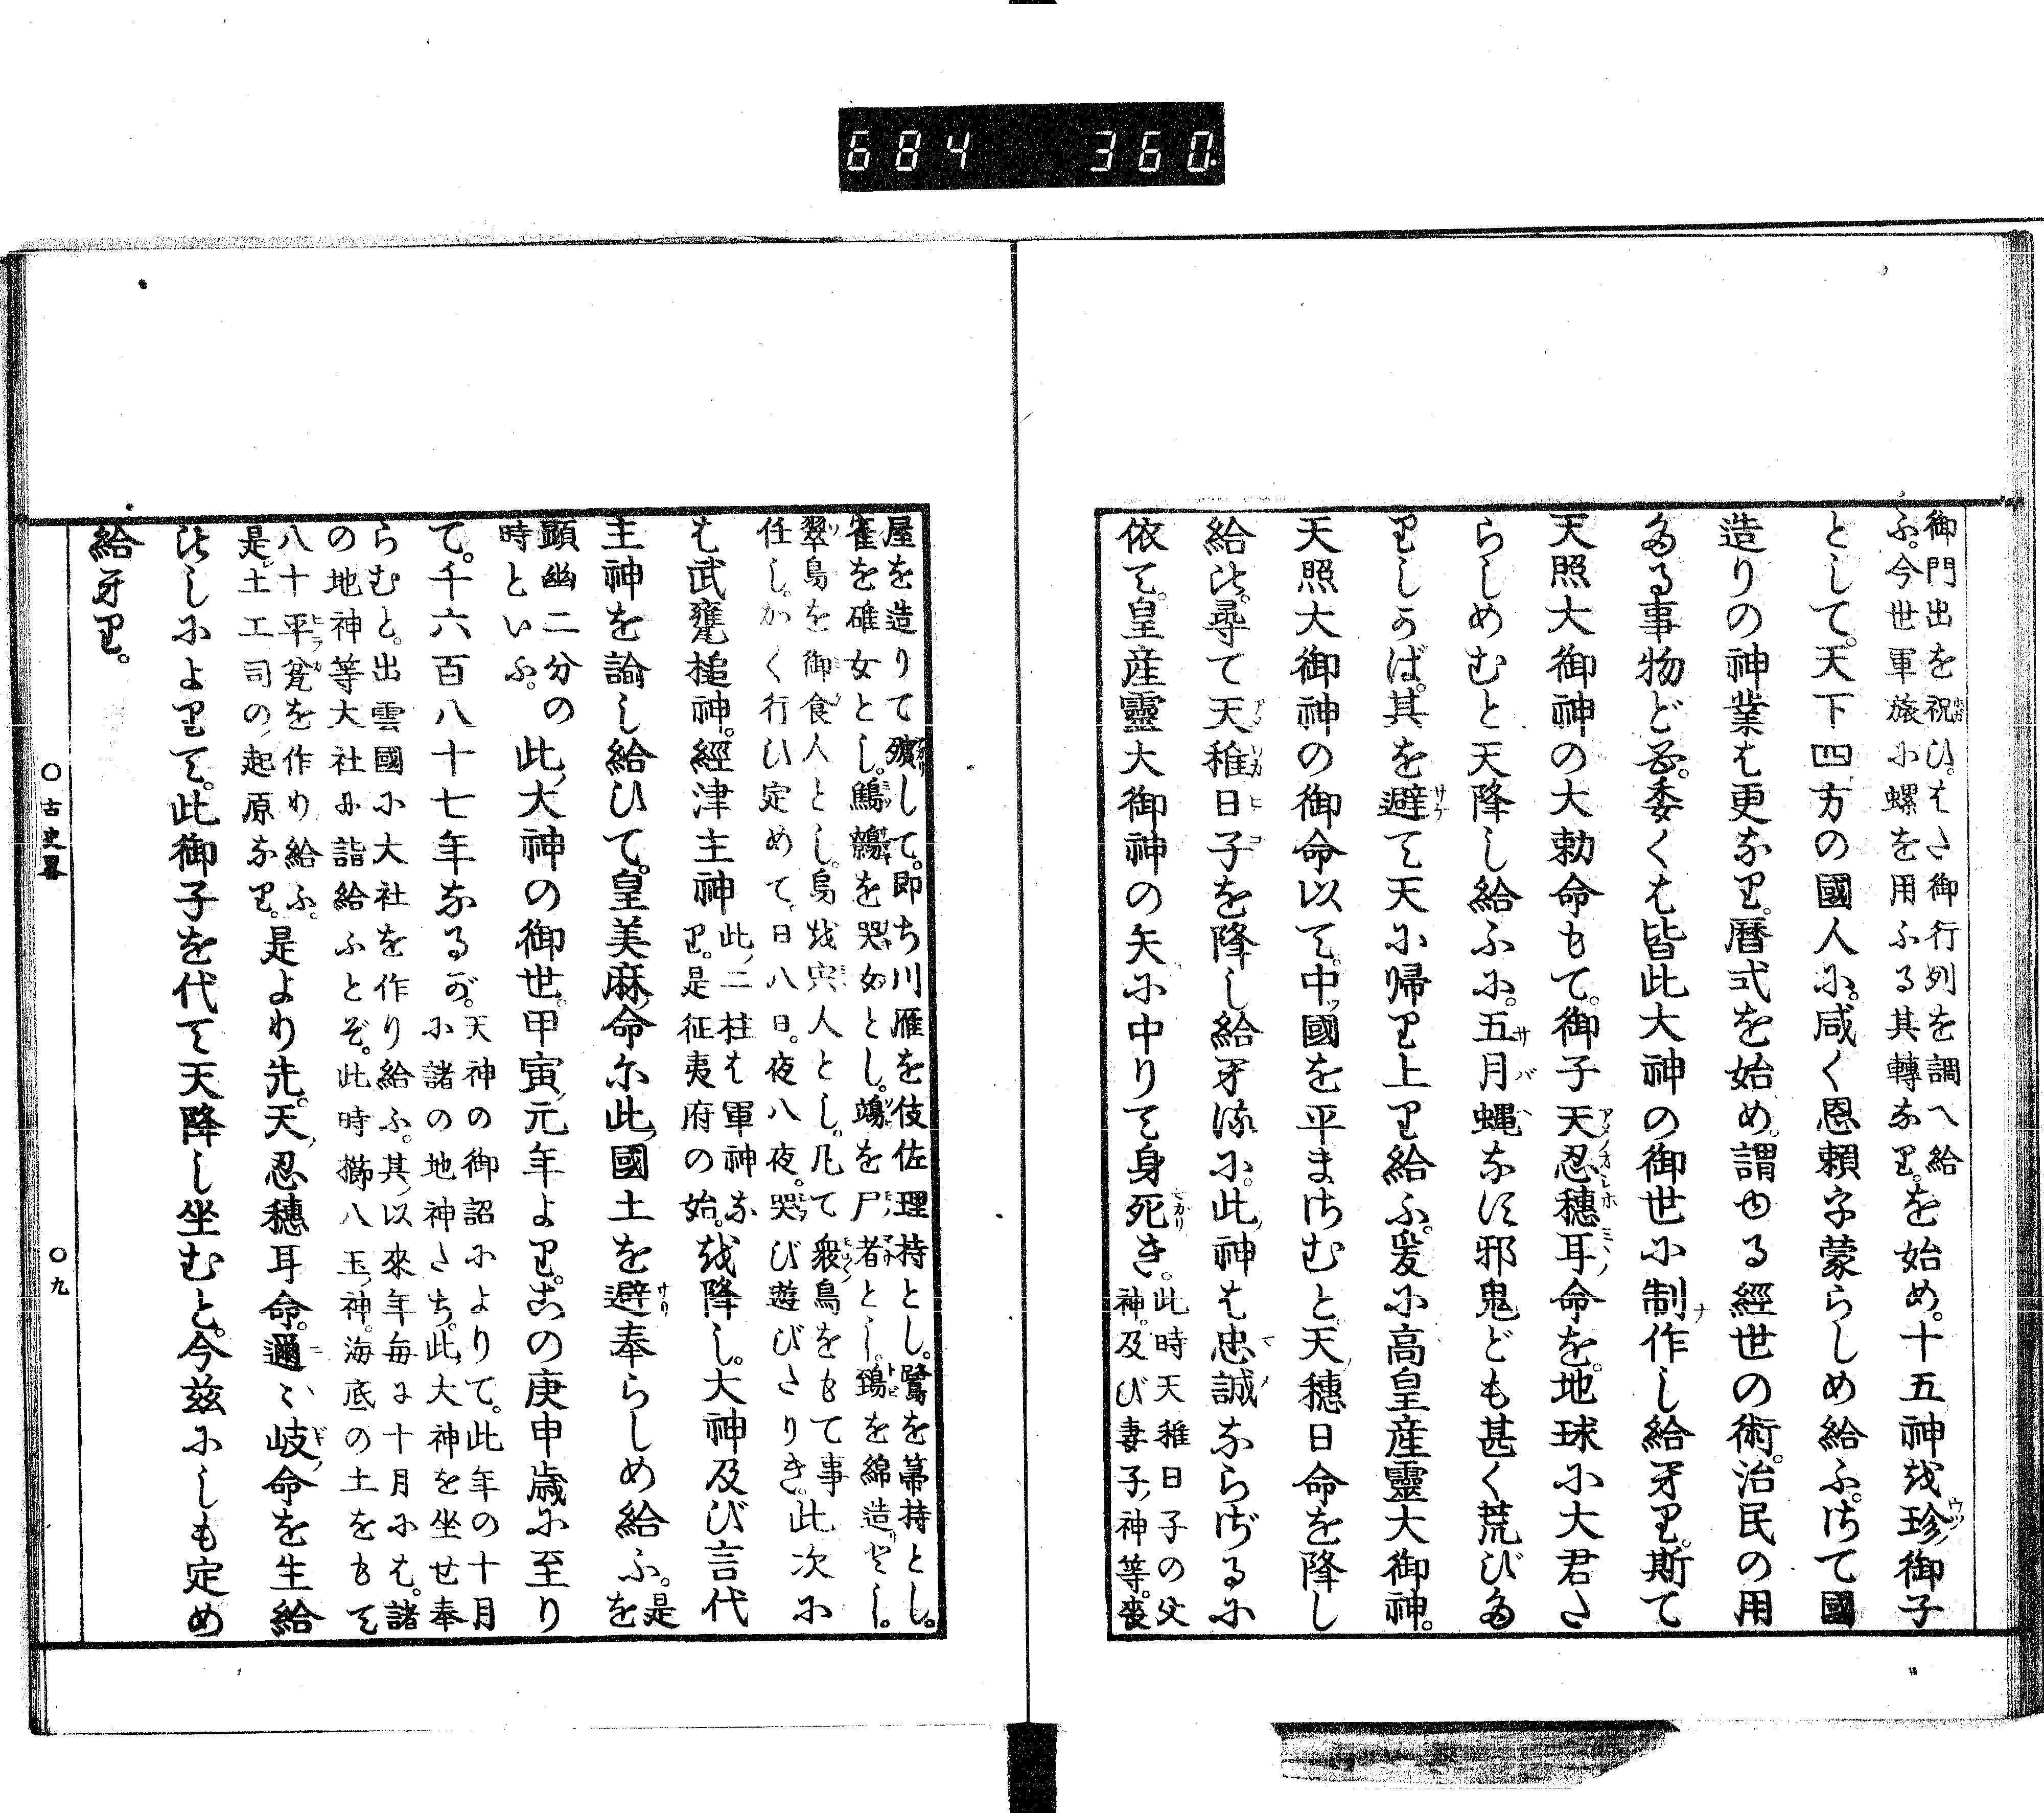 684 360.
御門出を祝ひ。また御行列を調へ給
ふ。今世軍旅に螺を用ふる其轉なり。を始め。十五神を珍御子
として。天下四方の國人に。咸く恩頼字蒙らしめ給ふ。さて國
造りの神業は更なり。暦式を始め。謂ゆる經世の術。治民の用
たる事物ども。委くは皆此大神の御世に制作し給ひけり。斯て
天照大御神の大勅命もて。御子天忍穂耳命を。地球に大君た
らしめむと天降し給ふに。五月蝿なす邪鬼ども甚く荒びた
りしかば。其を避て天に帰り上り給ふ。爰に高皇産靈大御神。
天照大御神の御命以て。中國を平まさむと。天穂日命を降し
給ふ。尋て天稚日子を降し給ひけるに。此神は忠誠ならざるに
依て。皇産靈大御神の矢に中りて身死き。此時天稚日子の父
神。及び妻子神等。喪
屋を造りて殯して。即ち川雁を伎佐理持とし。鷺を箒持とし。
雀を碓女とし。鷦鷯を哭女とし。鴗を尸者とし。鵄を綿造とし。
翠鳥を御食人とし。烏を宍人とし。凡て衆鳥をもて事
任し。かく行ひ定めて。日八日。夜八夜。哭び遊びたりき。此次に
は武甕槌神。經津主神此二柱は軍神な
り。是征夷府の始。を降し。大神及び言代
主神を諭し給ひて。皇美麻命に此國土を避奉らしめ給ふ。是を
顯幽二分の
時といふ。此大神の御世。甲寅元年より。この庚申歳に至り
て。千六百八十七年なるが。天神の御詔によりて。此年の十月
に諸の地神たち。此大神を坐せ奉
らむと。出雲國に大社を作り給ふ。其以來年毎に十月には。諸
の地神等大社に詣給ふとぞ。此時櫛八玉神。海底の土をもて
八十平瓮を作り給ふ。
是土工司の起原なり。是より先。天忍穗耳命。邇々岐命を生給
ひしによりて。此御子を代て天降し坐むと。今茲にしも定め
給ひけり。
○古史畧 ○九